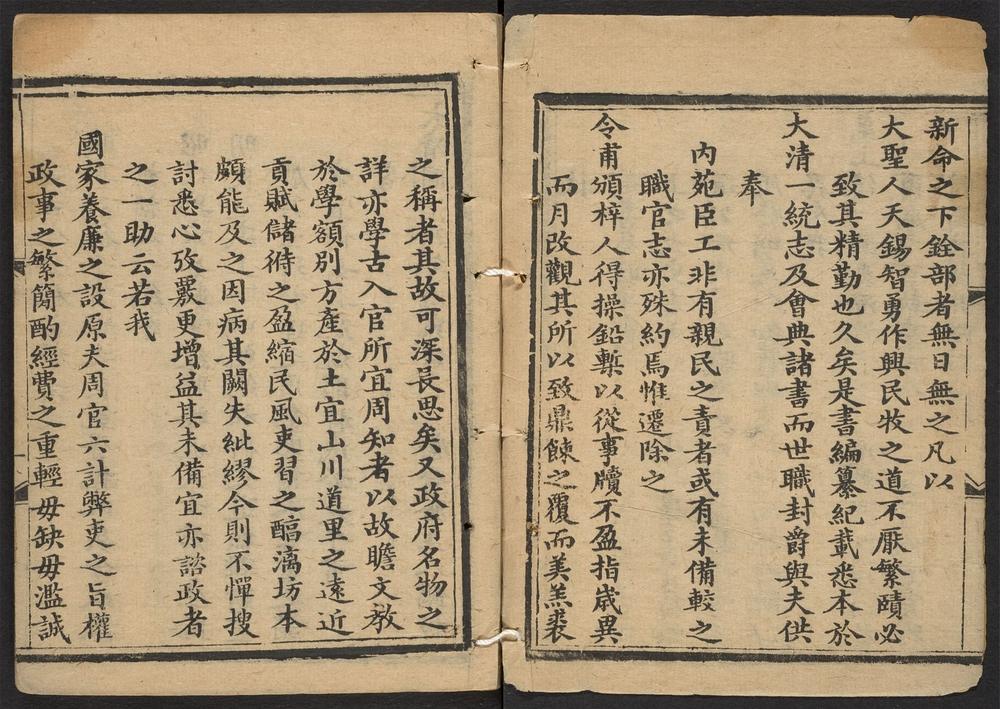 新命之下銓部者無日無之凡以
大聖人天錫智勇作興民牧之道不厭繁賾必
致其精勤也久矣是書編纂紀載悉本於
大清一統志及會典諸書而世職封爵與夫供
奉
內苑臣工非有親民之責者或有未備較之
職官志亦殊約焉惟遷除之
令甫頒梓人得操鉛槧以從事牘不盈指歲異
而月改觀其所以致鼎餗之覆而美羔裘
之稱者其故可深長思矣又政府名物之
詳亦學古入官所宜周知者以故瞻文教
於學額別方產於土宜山川道里之遠近
貢賦儲偫之盈縮民風吏習之醕漓坊本
頗能及之因病其闕失紕繆今則不憚搜
討悉心攷覈更增益其未備宜亦諮政者
之一助云若我
國家養廉之設原夫周官六計弊吏之旨權
政事之繁簡酌經費之重輕毋缺毋濫誠